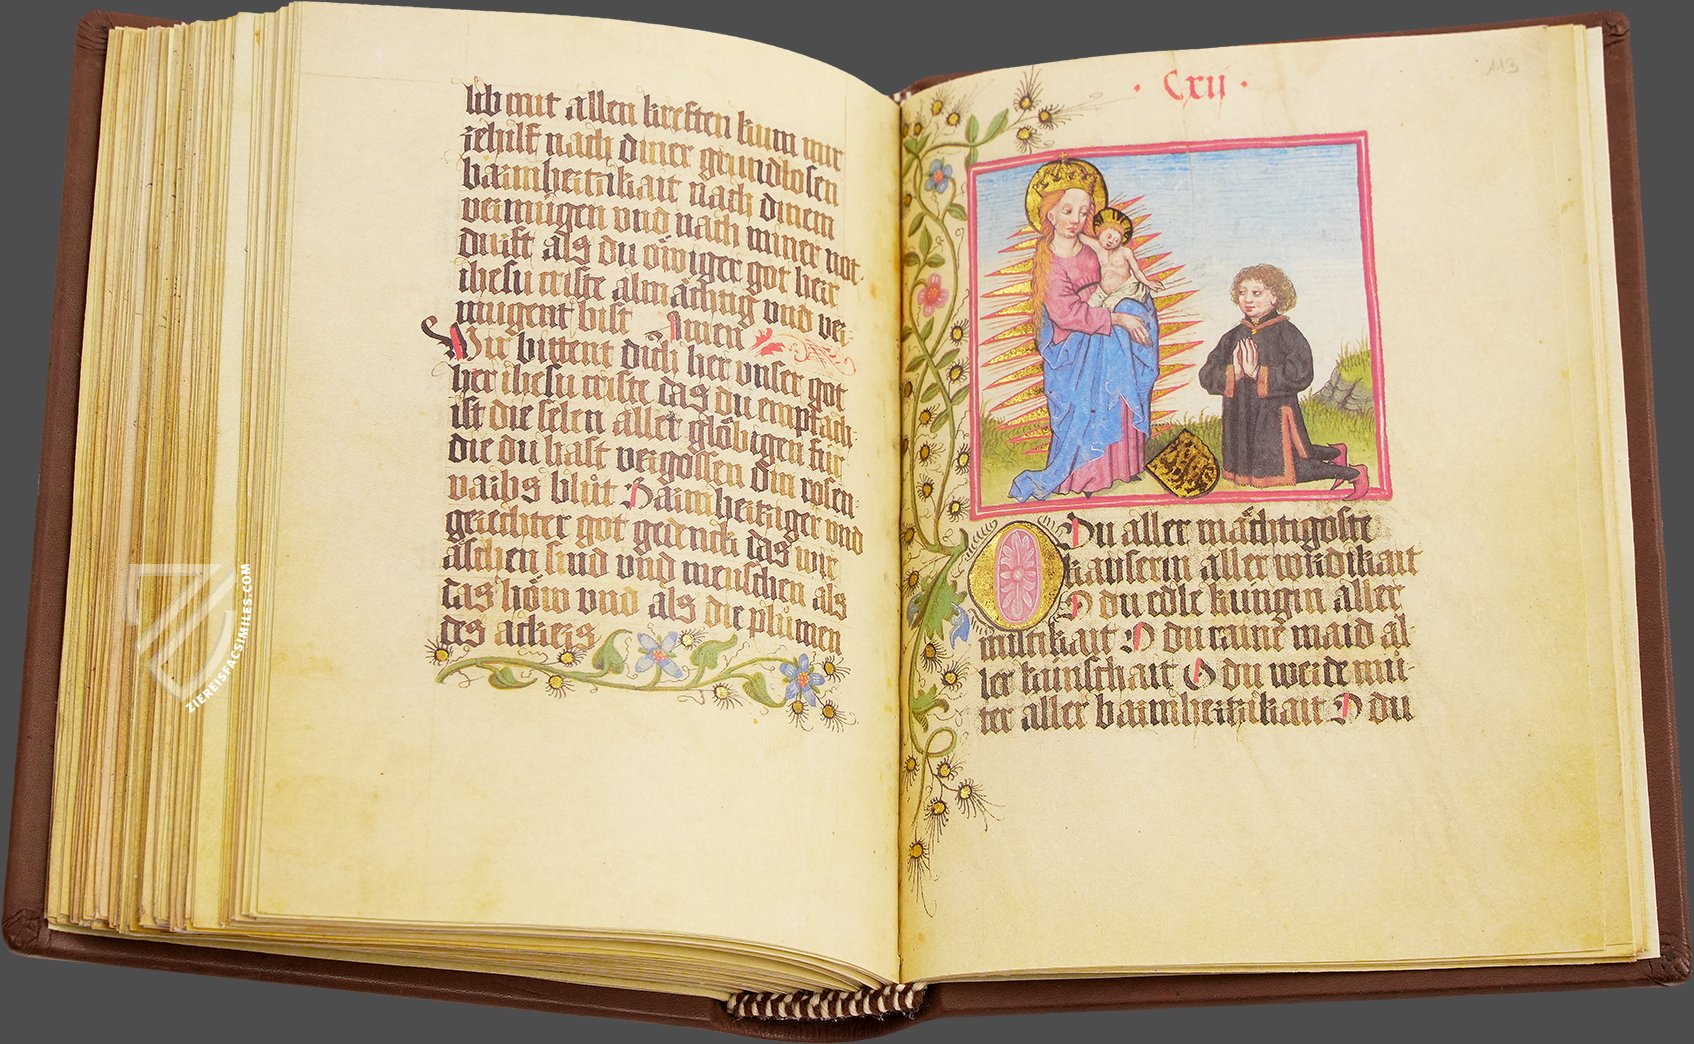 lib mit allen kreften kum mir
zehilf nach diner grundlosen
barmhertzikait nach dinem
vermügen vnd nach miner not
durft als du öwiger got herr
ihesu criste almächtig vnd ver¬
mügent bist Amen
Wir bittent dich her vnser got
her ihesu criste das du empfach¬
ist die selen aller glöbigen für
die du hast vergossen din rosen¬
varbs blůt Barmhertziger vnd
gerechter got gedenck das wir
äschen sind vnd menschen als
das höw vnd als die plůmen
des ackers
· Cxij ·
113
O Du aller mächtigoste
kaiserin aller wirdikait
O du edle küngin aller
miltikait O du raine maid al
ler künschait O du werde mů¬
ter aller barmhertzikait O du
ZIEREISFACSIMILES.COM